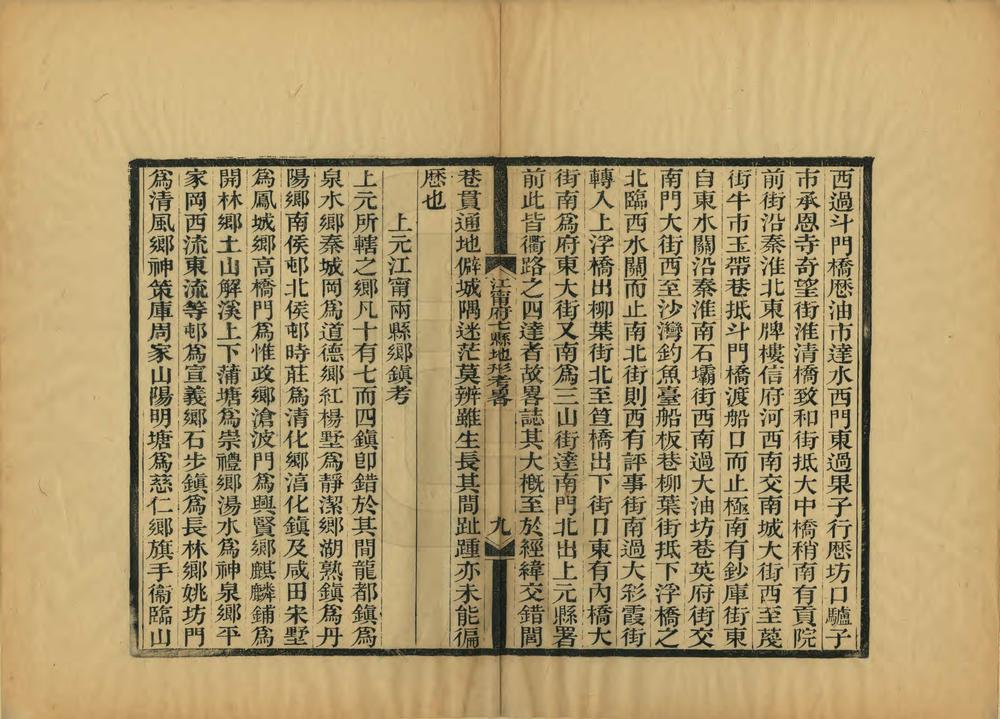 西過斗門橋歷油市達水西門東過果子行歷坊口驢子
市承恩寺奇望街淮清橋致和街抵大中橋稍南有貢院
前街沿秦淮北東牌樓信府河西南交南城大街西至䕞
街牛市玉帶巷抵斗門橋渡船口而止極南有鈔庫街東
自東水關沿秦淮南石壩街西南過大油坊巷英府街交
南門大街西至沙灣釣魚臺船板巷柳葉街抵下浮橋之
北臨西水關而止南北街則西有評事街南過大彩霞街
轉入上浮橋出柳葉街北至笪橋出下街口東有內橋大
街南爲府東大街又南爲三山街達南門北出上元縣署
前此皆衢路之四達者故畧誌其大槪至於經緯交錯閭
江甯府七縣地形考畧
九
巷貫通地僻城隅迷茫莫辨雖生長其間趾踵亦未能徧
歷也
上元江甯兩縣鄉鎭考
上元所轄之鄉凡十有七而四鎭卽錯於其間龍都鎭爲
泉水鄉秦城岡爲道德鄉紅楊墅爲靜潔鄉湖熟鎭爲丹
陽鄉南侯邨北侯邨時莊爲清化鄉淯化鎭及咸田宋墅
爲鳳城鄉高橋門爲惟政鄉滄波門爲興賢鄉麒麟鋪爲
開林鄉土山解溪上下蒲塘爲崇禮鄉湯水爲神泉鄉平
家岡西流東流等邨爲宣義鄉石步鎭爲長林鄉姚坊門
爲清風鄉神策庫周家山陽明塘爲慈仁鄉旗手衞臨山